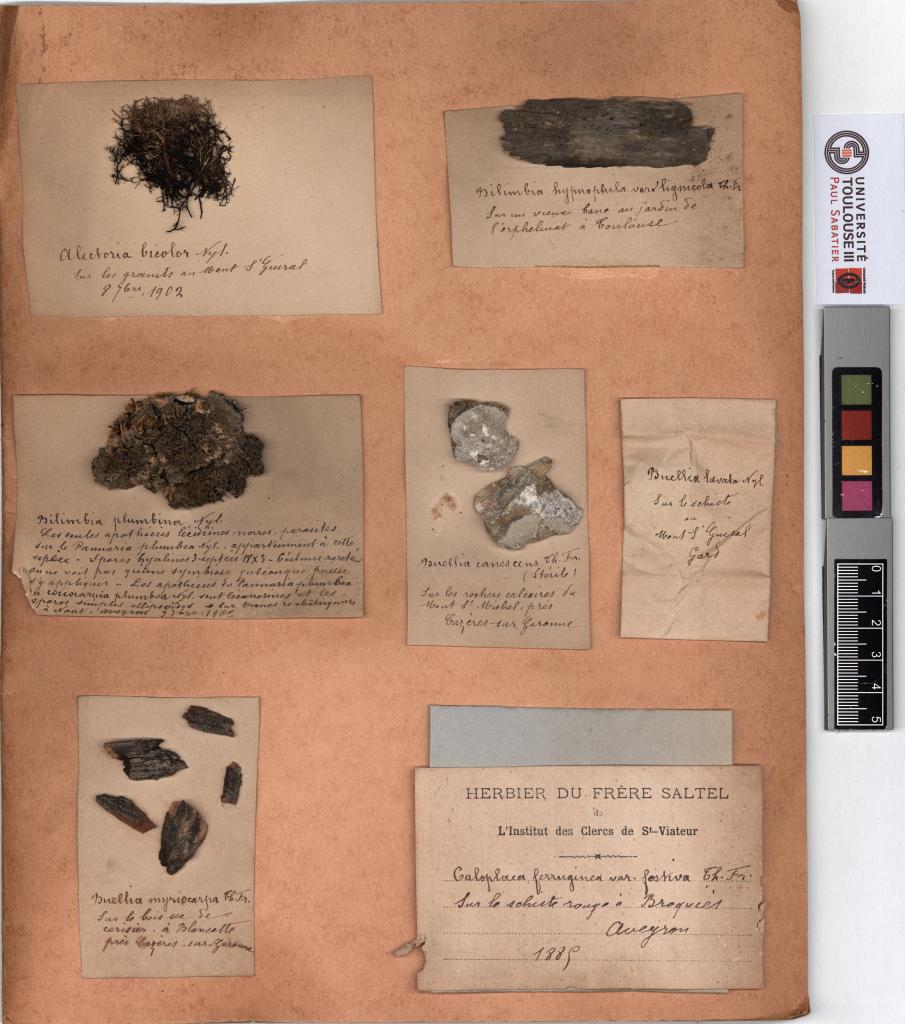 Alectoria bicolor Nyl.
Sur les granits au Mont St Guiral
8 7bre, 1902
Bilimbia hypnophila var. lignicola Th. Fr.
Sur un vieux banc au jardin de
l'orphelinat à Toulouse
Bilimbia plumbina Nyl.
Les seules apothécies lécidéines noires, parasites
sur le Pannaria plumbea Nyl. appartiennent à cette
espèce. Spores hyalines 3-septées
on ne voit pas qu'une symbiose quelconque puisse
s'y appliquer - Les apothécies du Pannaria plumbea
ou coccocarpia plumbea Nyl. sont et les
spores simples ellipsoïdes - Sur troncs
à Nant, Aveyron 7bre
Buellia canescens Th. Fr.
(Stérile)
Sur les rochers calcaires du
Mont St Michel, près
Cazères-sur-Garonne
Buellia lavata Nyl.
Sur le schiste
au
Mont St Guiral
Gard
Buellia myriocarpa Th. Fr.
Sur le bois sec de
cerisier, à Blancotte
près Cazères-sur-Garonne
HERBIER DU FRÈRE SALTEL
de
L'Institut des Clercs de St-Viateur
Caloplaca ferruginea var. festiva Th. Fr.
Sur le schiste rouge à Broquiès
Aveyron
1885
UNIVERSITÉ
TOULOUSE III
PAUL SABATIER
0 1 2 3 4 5